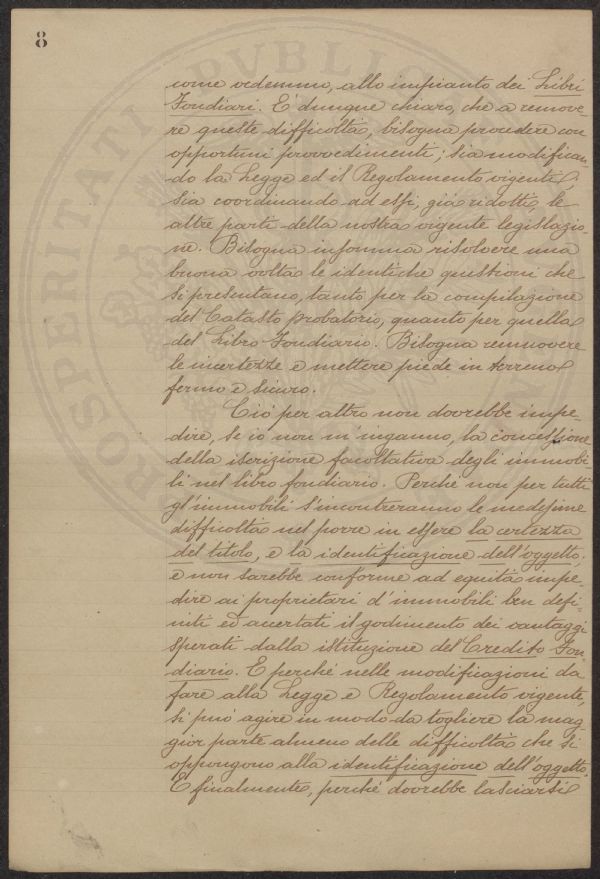 8
come vedemmo, allo impianto dei Libri
Fondiari. E' dunque chiaro, che a remove-
re queste difficoltà, bisogna procedere con
opportuni provvedimenti; sia modifican-
do la Legge ed il Regolamento vigenti,
sia coordinando ad essi, già ridotti, le
altre parti della nostra vigente legislazio-
ne. Bisogna insomma risolvere una
buona volta le identiche questioni che
si presentano, tanto per la compilazione
del Catasto probatorio, quanto per quella
del Libro Fondiario. Bisogna remmovere
le incertezze e mettere piede in terreno
fermo e sicuro.
Ciò per altro non dovrebbe impe-
dire, se io non m'inganno, la concessione
della iscrizione facoltativa degli immobi-
li nel libro fondiario. Perché non per tutti
gl'immobili s'incontreranno le medesime
difficoltà nel porre in essere la certezza
del titolo, e la identificazione dell'oggetto;
e non sarebbe conforme ad equità impe-
dire ai proprietari d'immobili ben defi-
niti ed accertati il godimento dei vantaggi
sperati dalla istituzione del Credito Fon-
diario. E perché nelle modificazioni da
fare alla Legge e Regolamento vigente,
si può agire in modo da togliere la mag
gior parte almeno delle difficoltà che si
oppongono alla identificazione dell'oggetto.
E finalmente, perché dovrebbe lasciarsi
PROSPERITATI PVBLICAE